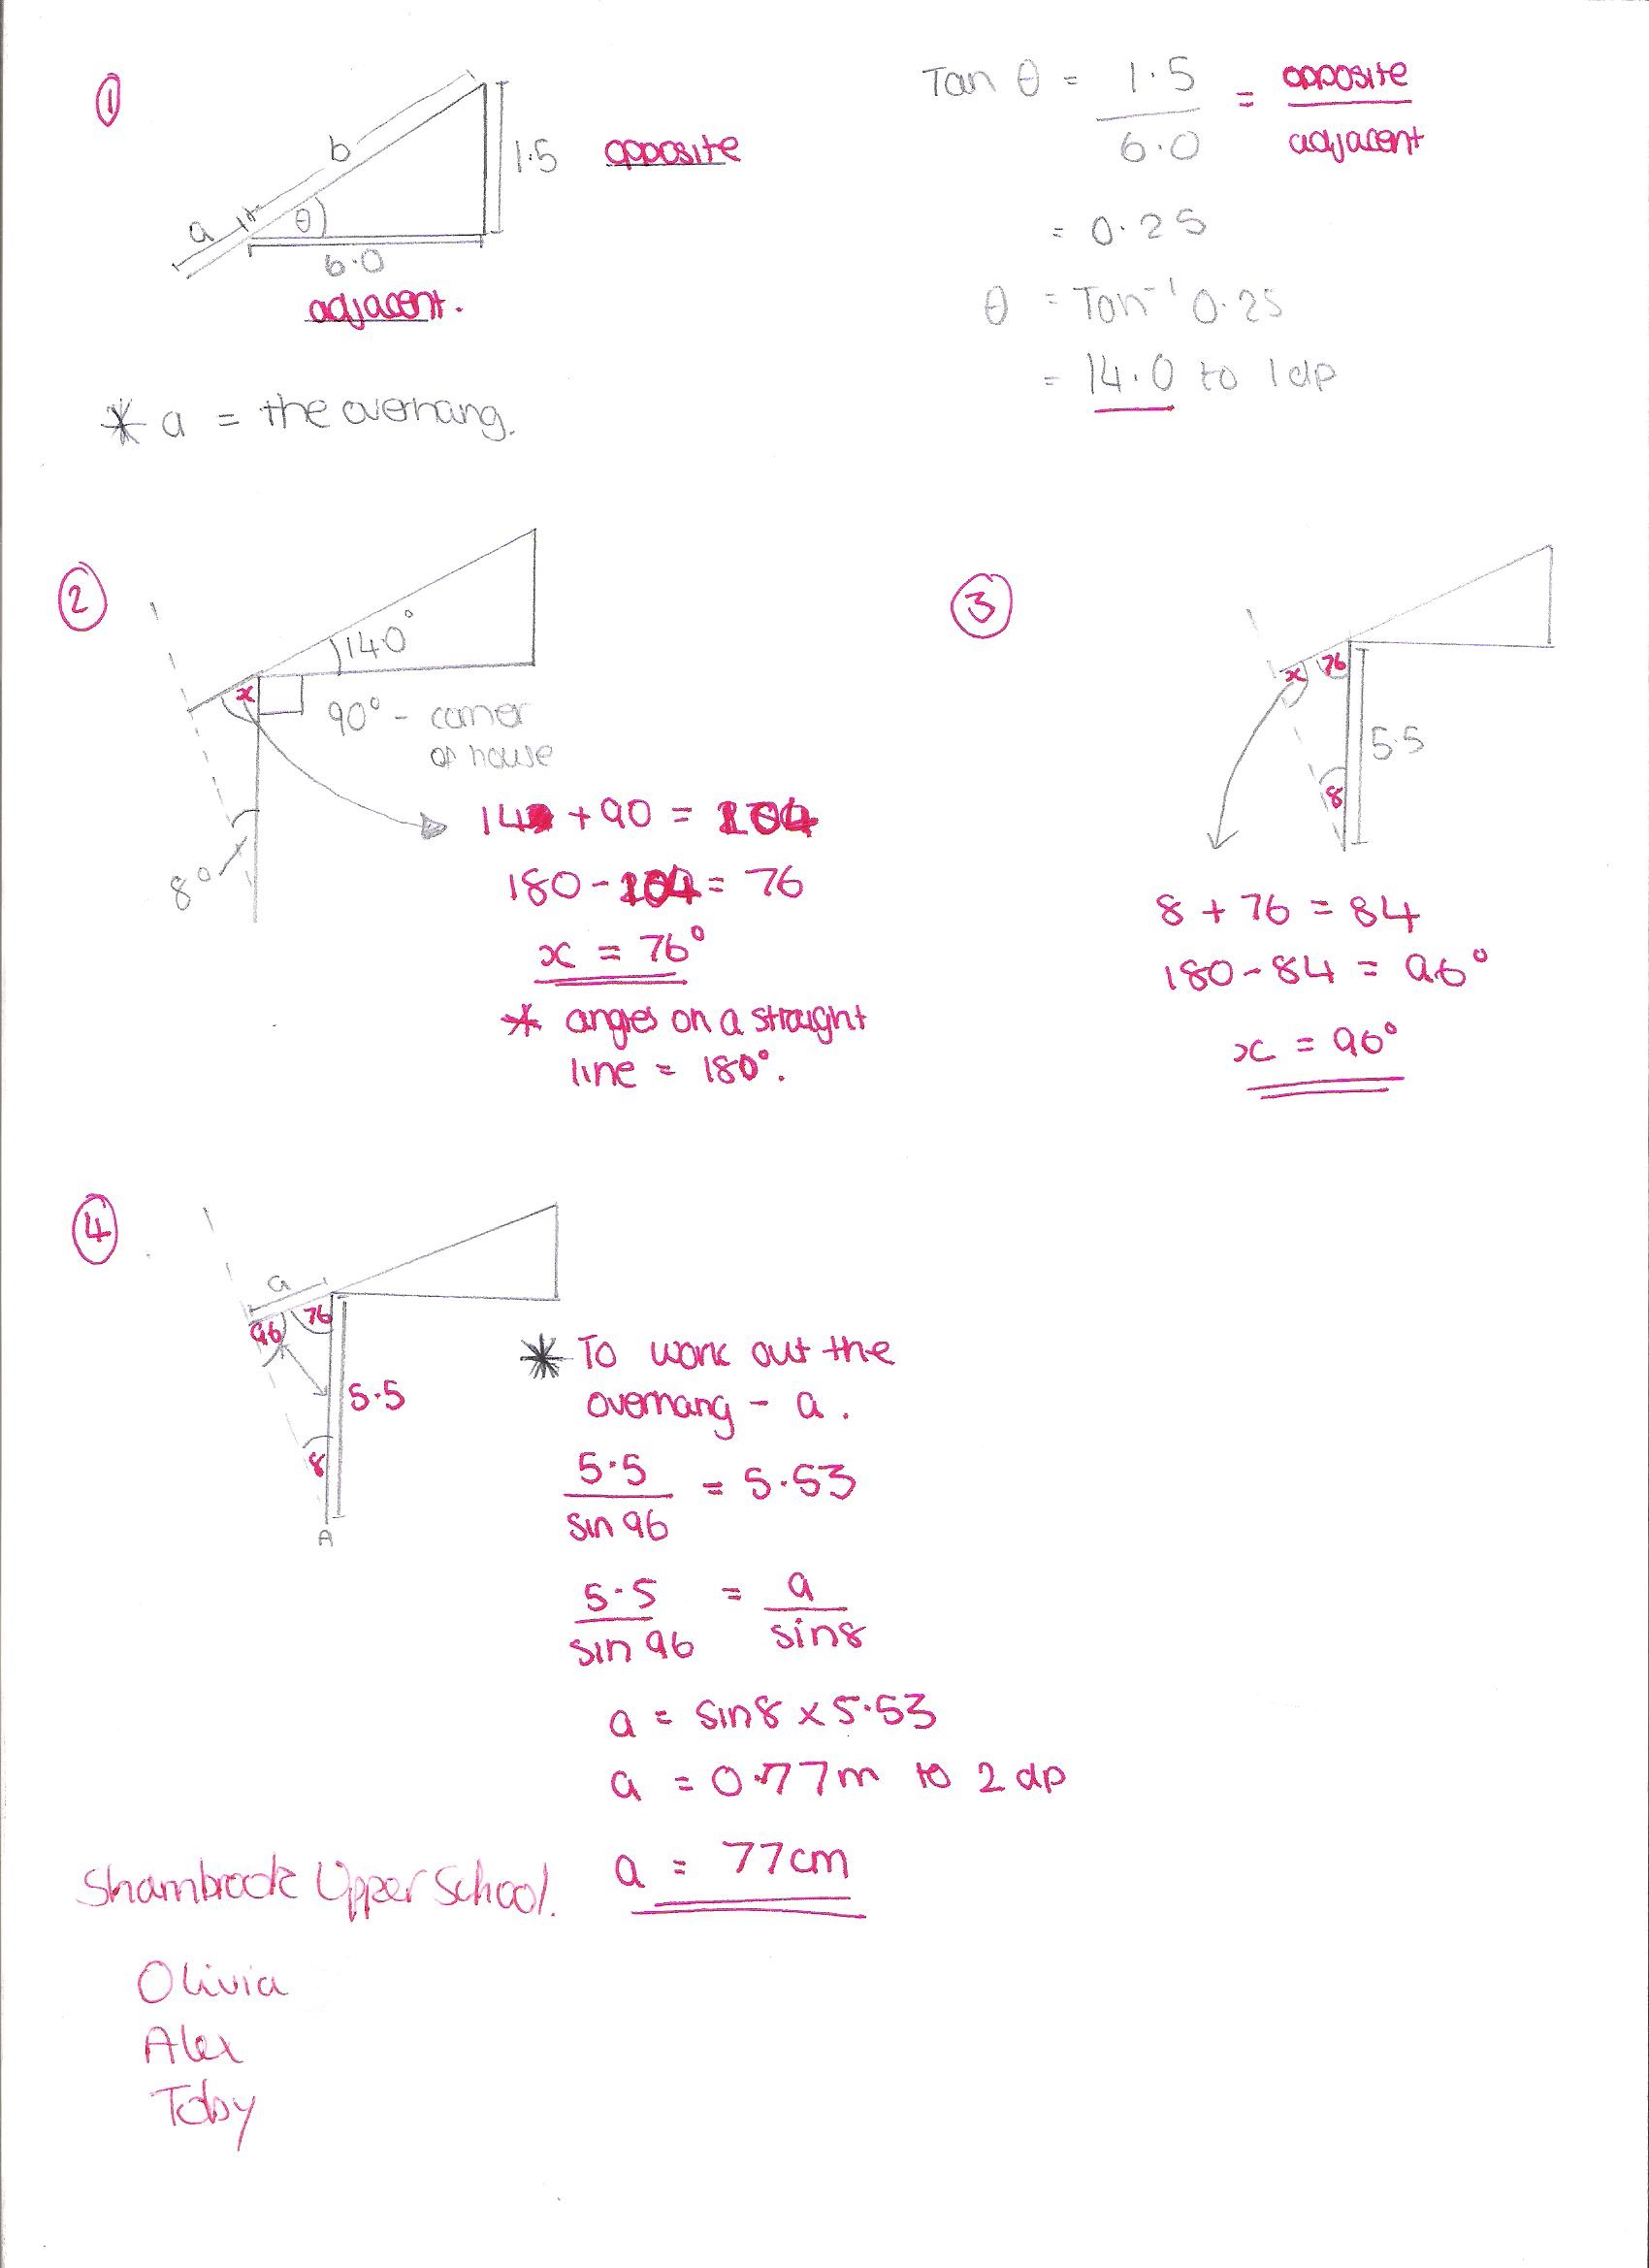 ①
b
a
θ
1.5
opposite
6.0
adjacent.
* a = the overhang.
Tan θ = 1.5 / 6.0 = opposite / adjacent
= 0.25
θ = Tan⁻¹ 0.25
= 14.0 to 1dp
②
14.0°
x
90° - corner
of house
8°
14 + 90 = 104
180 - 104 = 76
x = 76°
* angles on a straight
line = 180°.
③
x 76
5.5
8
8 + 76 = 84
180 - 84 = 96°
x = 96°
④
a
96 76
5.5
8
A
* To work out the
overhang - a.
5.5 / sin 96 = 5.53
5.5 / sin 96 = a / sin8
a = sin8 x 5.53
a = 0.77m to 2 dp
a = 77cm
Sharnbrook Upper School.
Olivia
Alex
Toby